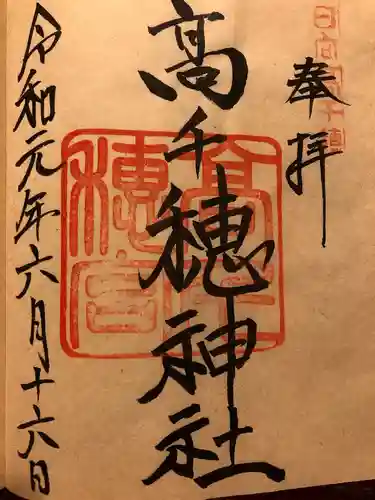 奉拝
日向国高千穂
高千穂神社
高千穂宮
令和元年六月十六日